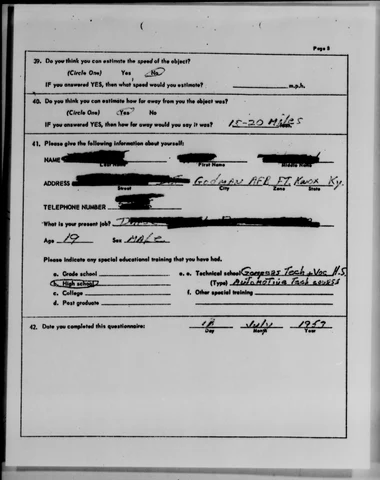 Page 5
39. Do you think you can estimate the speed of the object?
(Circle One) Yes No
IF you answered YES, then what speed would you estimate? m.p.h.
40. Do you think you can estimate how far away from you the object was?
(Circle One) Yes No
IF you answered YES, then how far away would you say it was? 15-20 Miles
41. Please give the following information about yourself:
NAME
Last Name First Name Middle Name
ADDRESS Godman AFB FT. Knox Ky.
Street City Zone State
TELEPHONE NUMBER
What is your present job?
Age 19 Sex MALE
Please indicate any special educational training that you have had.
a. Grade school e. Technical school Tech & Voc H.S.
b. High school (Type) Automotive Tech
c. College f. Other special training
d. Post graduate
42. Date you completed this questionnaire: 18 July
Day Month Year